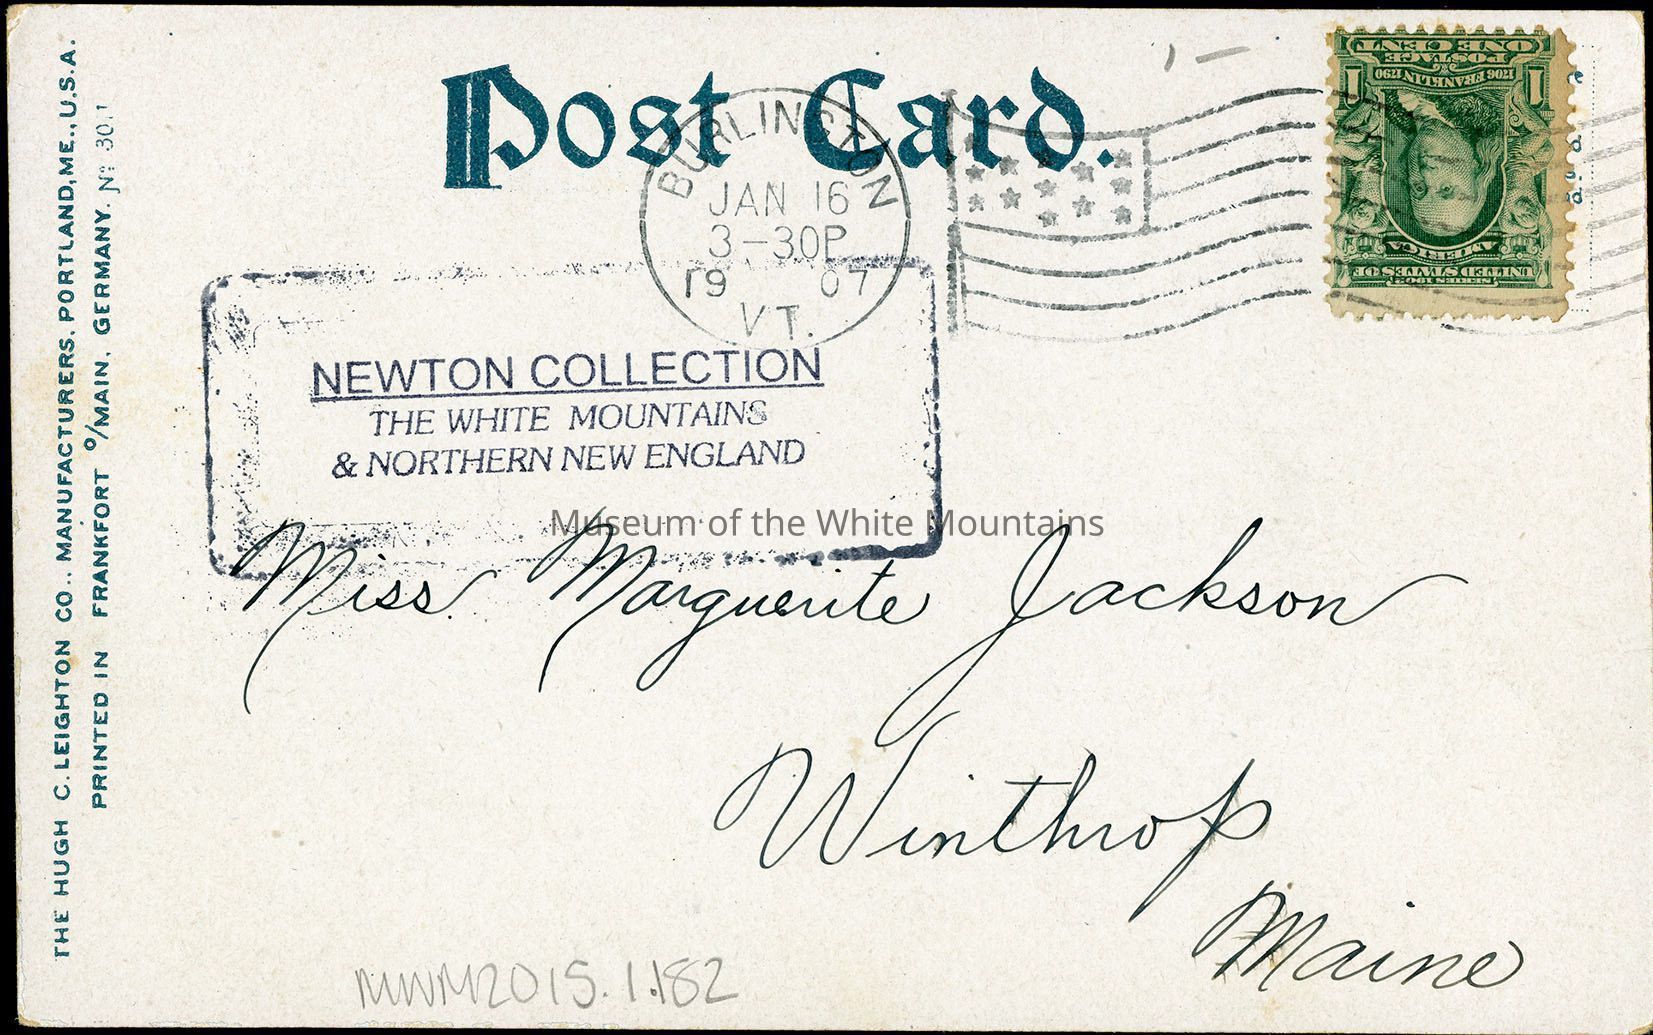 Post Card.
BURLINGTON
JAN 16
3-30P
19 07
VT.
ONE CENT
1 POSTAGE 1
1706 FRANKLIN 1790
AMERICA
UNITED STATES OF
SERIES 1902
THE HUGH C. LEIGHTON CO., MANUFACTURERS, PORTLAND, ME., U.S.A.
PRINTED IN FRANKFORT o/MAIN, GERMANY. No
NEWTON COLLECTION
THE WHITE MOUNTAINS
& NORTHERN NEW ENGLAND
Museum of the White Mountains
Miss. Marguerite Jackson
Winthrop
Maine
MWM2015.1.182